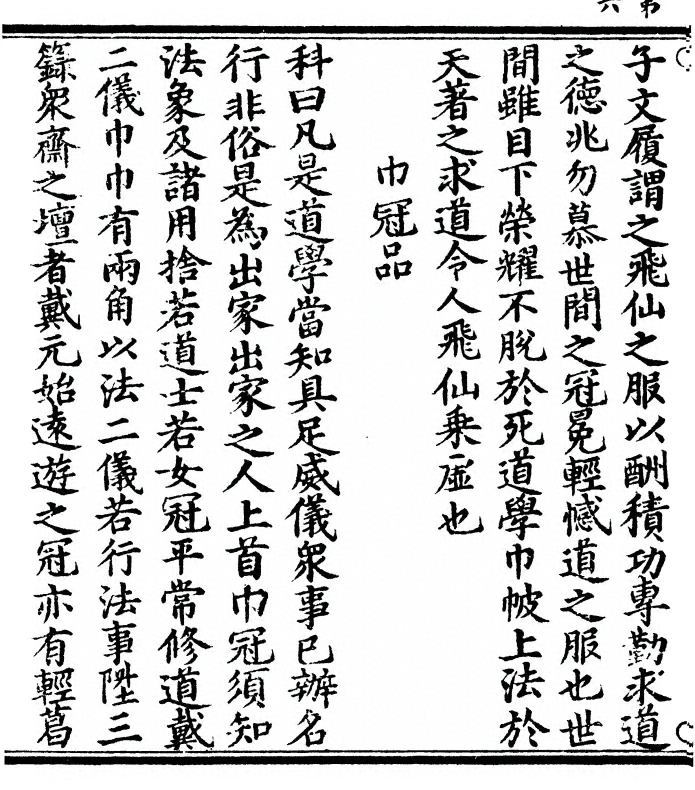 第六
子文履謂之飛仙之服以酬積功專勤求道
之德兆勿慕世間之冠冕輕憾道之服也世
間雖目下榮耀不脫於死道學巾帔上法於
天著之求道令人飛仙乗虛也
巾冠品
科曰凡是道學當知具足威儀衆事已辦名
行非俗是為出家出家之人上首巾冠須知
法象及諸用捨若道士若女冠平常修道戴
二儀巾巾有兩角以法二儀若行法事陞三
籙衆齋之壇者戴元始遠遊之冠亦有輕葛